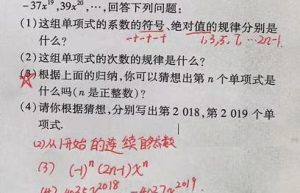 -37x¹⁹,39x²⁰,…,回答下列问题:
(1)这组单项式的系数的符号、绝对值的规律分别是
什么?
-+-+-+ 1,3,5,7,…2n-1.
(2)这组单项式的次数的规律是什么?
(3)根据上面的归纳,你可以猜想出第 n 个单项式是
什么(n 是正整数)?
(4)请你根据猜想,分别写出第 2 018,第 2 019 个单
项式.
(2)从1开始的连续自然数
(3) (-1)ⁿ(2n-1)xⁿ
(4) 4035x²⁰¹⁸ -4037x²⁰¹⁹